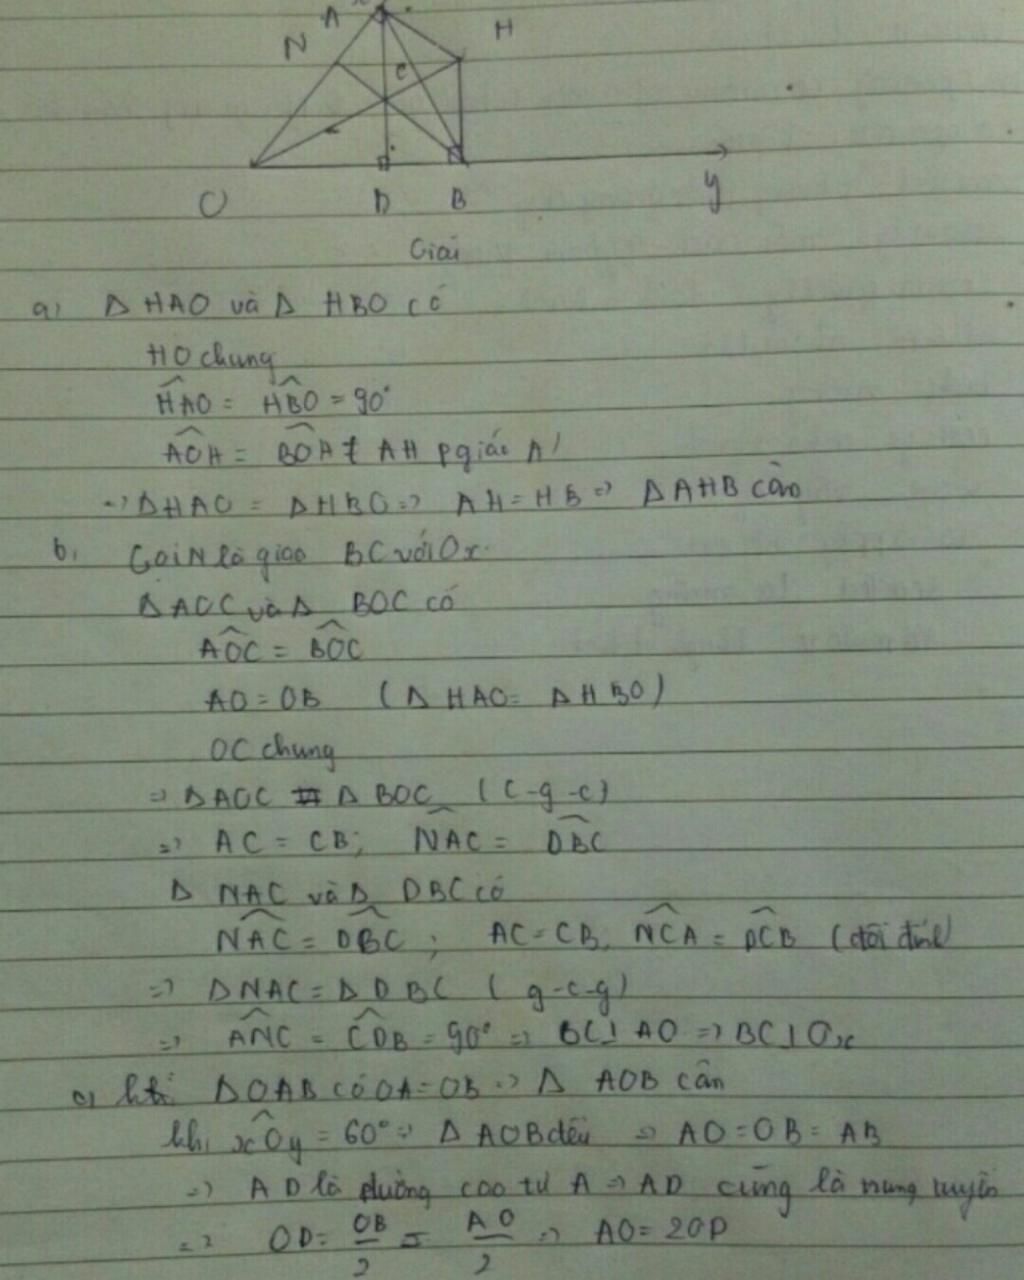 A
N
H
C
O
D
B
y
Giải
a) Δ HAO và Δ HBO có
HO chung
HAO = HBO = 90°
AOH = BOH ( AH pgiác A)
=> ΔHAO = ΔHBO => AH = HB => ΔAHB cân
b, Gọi N là giao BC với Ox.
ΔAOC và Δ BOC có
AOC = BOC
AO = OB ( Δ HAO = Δ HBO)
OC chung
=> ΔAOC = Δ BOC ( c-g-c)
=> AC = CB; NAC = DBC
Δ NAC và Δ DBC có
NAC = DBC ; AC = CB, NCA = DCB (đối đỉnh)
=> ΔNAC = Δ DBC ( g-c-g)
=> ANC = CDB = 90° => BC ⊥ AO => BC ⊥ Ox
c) ΔOAB có OA = OB => Δ AOB cân
khi xOy = 60° => Δ AOB đều => AO = OB = AB
=> AD là đường cao từ A => AD cũng là trung tuyến
=> OD = OB/2 = AO/2 => AO = 2OD